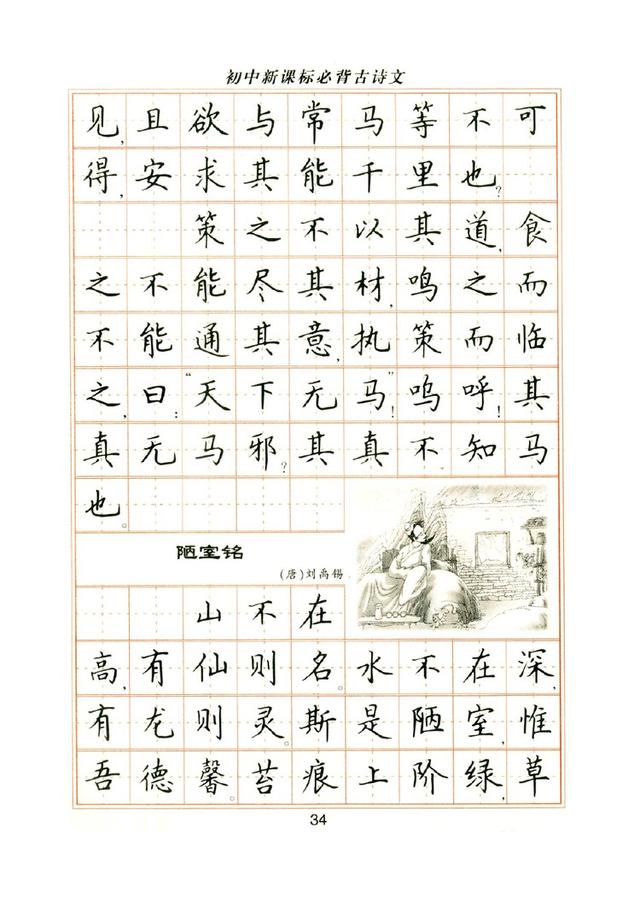 初中新课标必背古诗文
见,且欲与常马等不可
得,安求其能千里也?
策之不以其道,食
之不能尽其材,鸣之而
不能通其意,执策而临
之,曰:“天下无马”!呜呼!其
真无马邪?其真不知马
也。
陋室铭
(唐)刘禹锡
山不在
高,有仙则名。水不在深,
有龙则灵。斯是陋室,惟
吾德馨。苔痕上阶绿,草
34